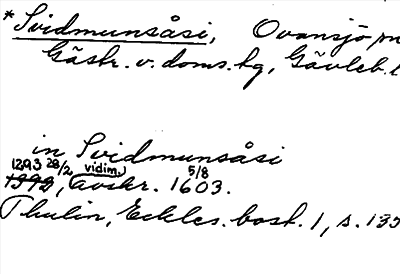 *Svidmunsåsi, Ovansjö sn
Gästr. v. doms. hg, Gävleb. l
in Svidmunsåsi
1293 28/2 vidim. 5/8
1292, avskr. 1603.
Thulin, Eckles. bost. 1, s. 135